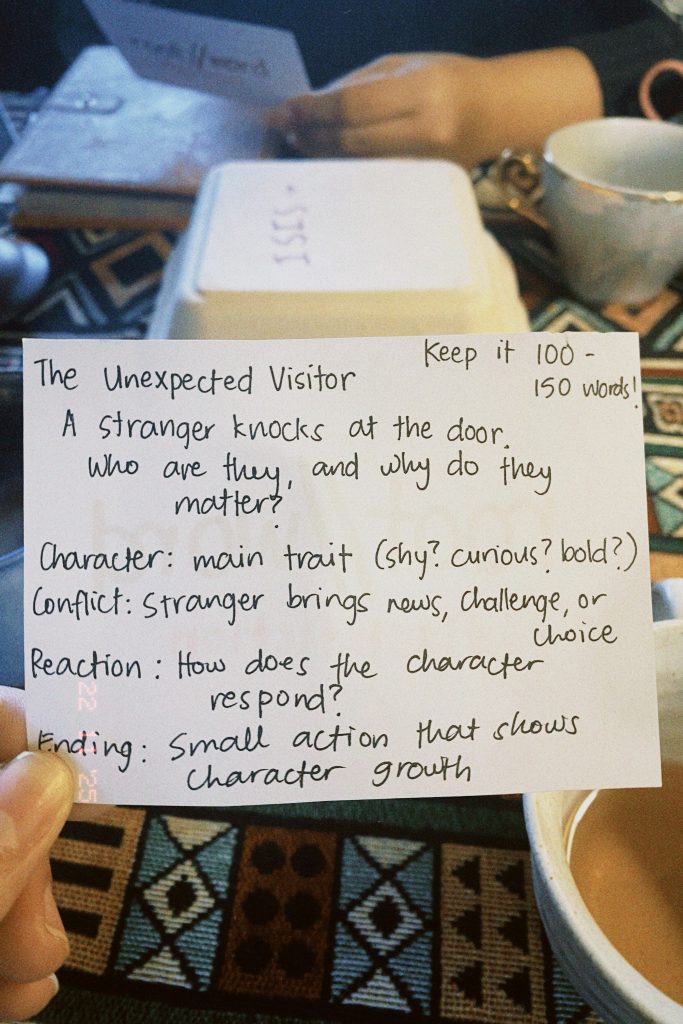 ISIS.
The Unexpected Visitor
Keep it 100 -
150 words!
A stranger knocks at the door.
Who are they, and why do they
matter?
Character: main trait (shy? curious? bold?)
Conflict: Stranger brings news, challenge, or
choice
Reaction: How does the character
respond?
Ending: Small action that shows
character growth